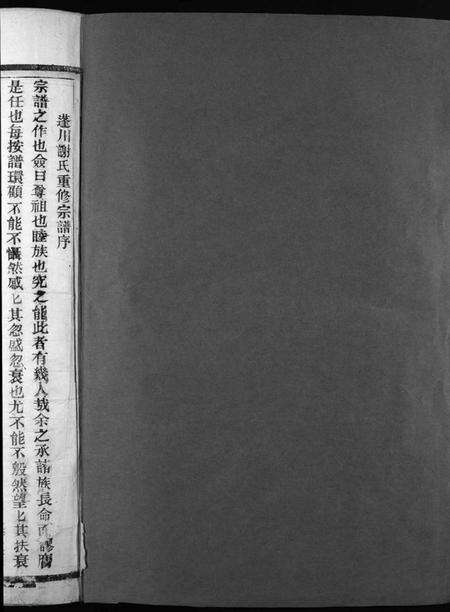 蓬川謝氏重修宗譜序
宗譜之作也僉曰尊祖也睦族也究之能此者有幾人哉余之承諸族長命而謬膺
是任也每按譜環顧不能不慨然感匕其忽盛忽衰也尤不能不殷然望匕其扶衰